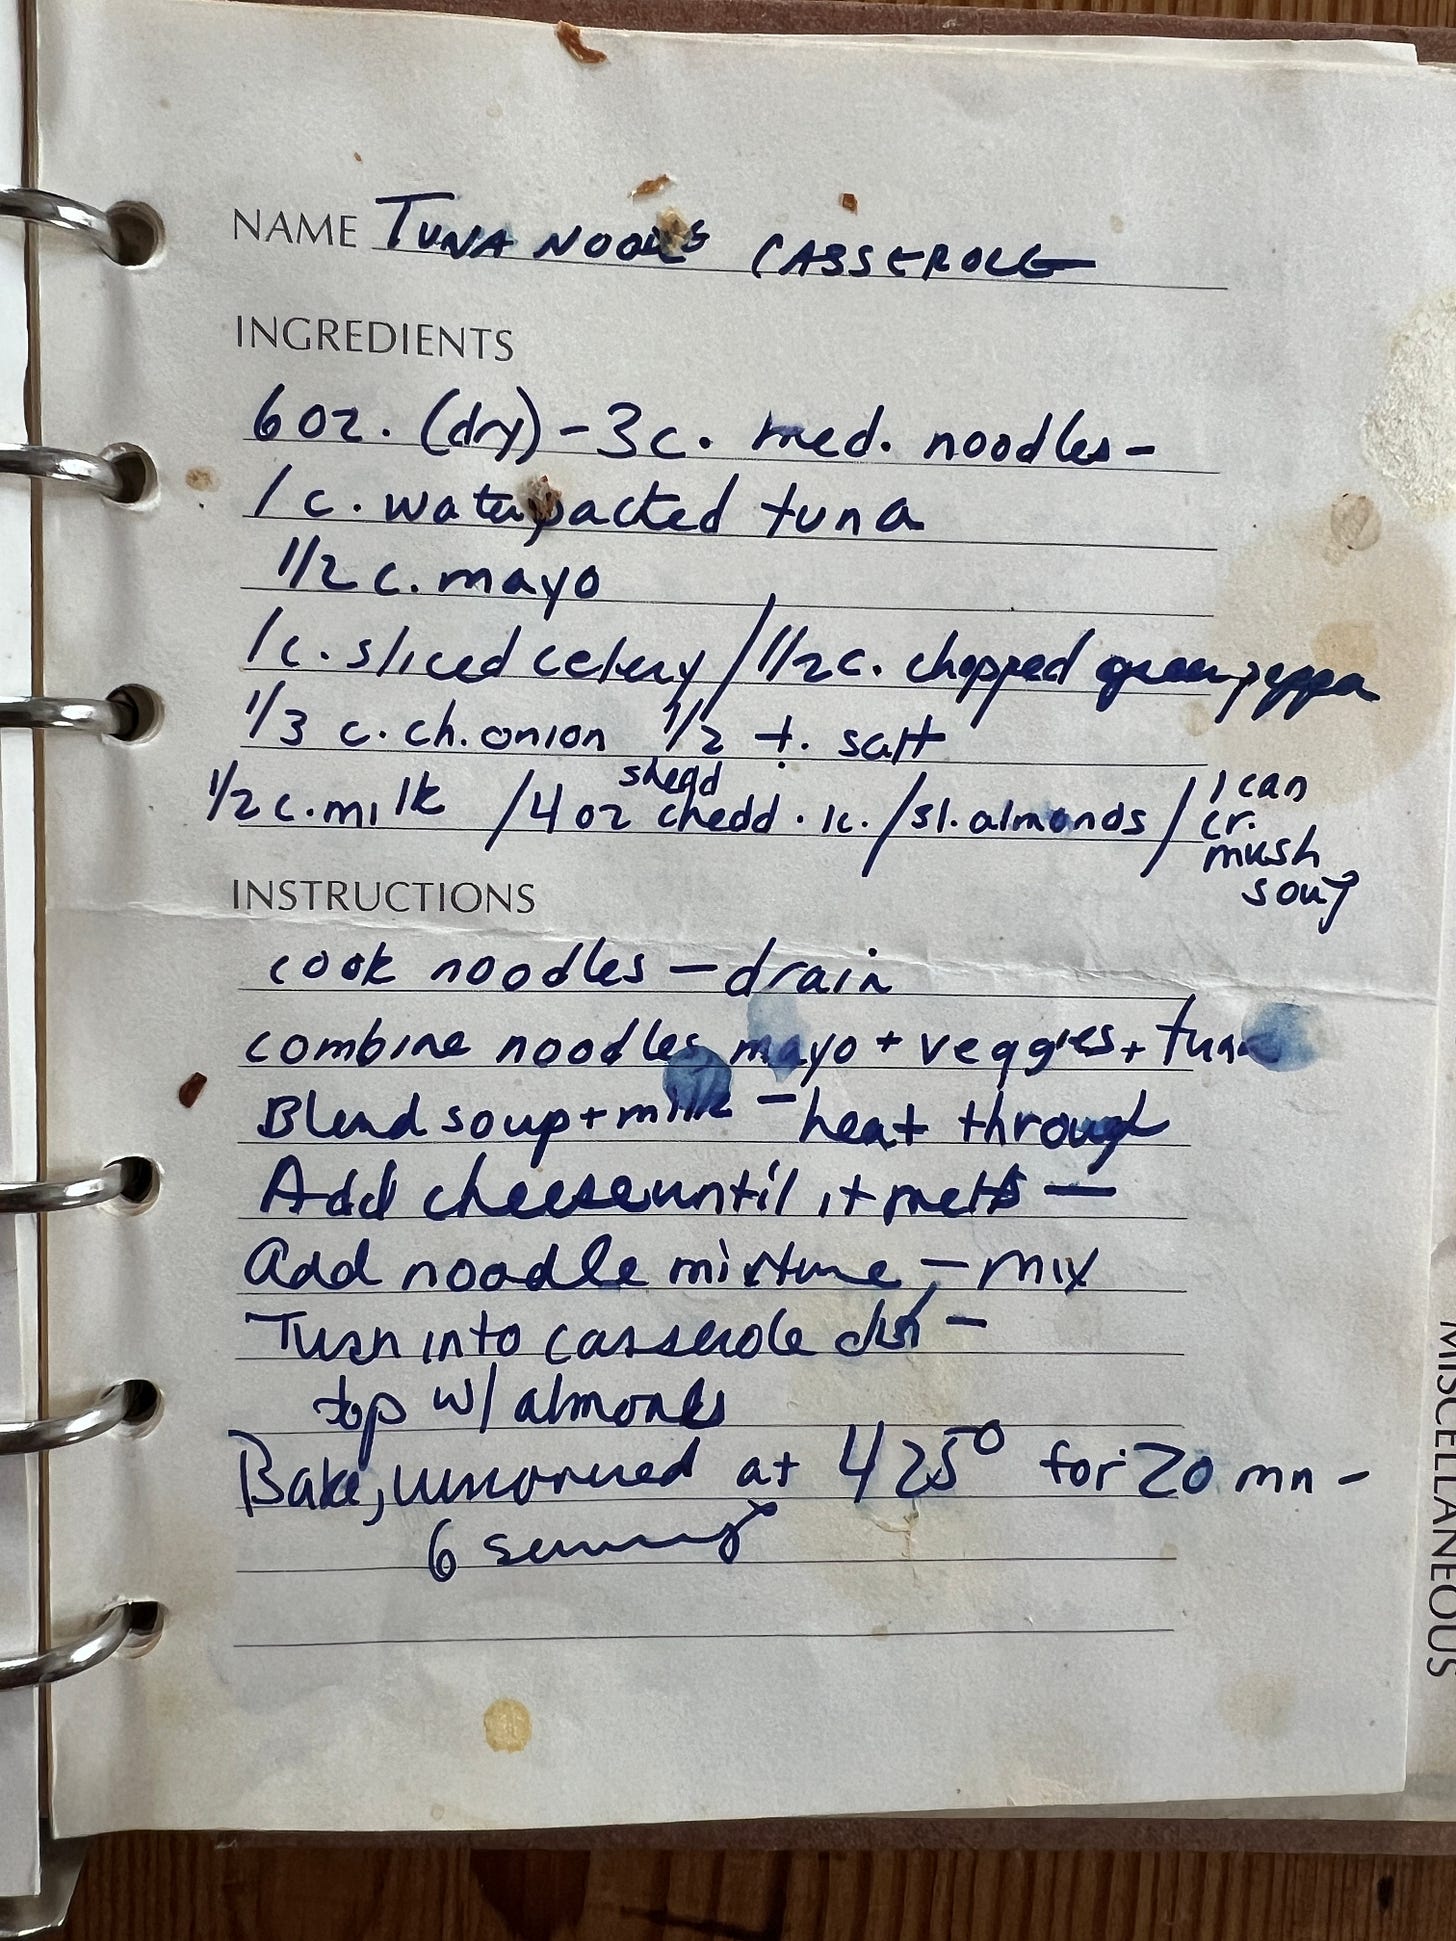 NAME TUNA NOODLE CASSEROLE
INGREDIENTS
6 oz. (dry) - 3 c. med. noodles -
1 c. waterpacked tuna
1/2 c. mayo
1 c. sliced celery / 1/2 c. chopped green pepper
1/3 c. ch. onion 1/2 t. salt
1/2 c. milk / 4 oz shredd chedd. 1c. / sl. almonds / 1 can
cr.
mush
soup
INSTRUCTIONS
cook noodles — drain
combine noodles mayo + veggies + tuna
Blend soup + milk — heat through
Add cheese until it melts —
Add noodle mixture — mix
Turn into casserole dish —
top w/ almonds
Bake, uncovered at 425° for 20 mn -
6 servings
MISCELLANEOUS